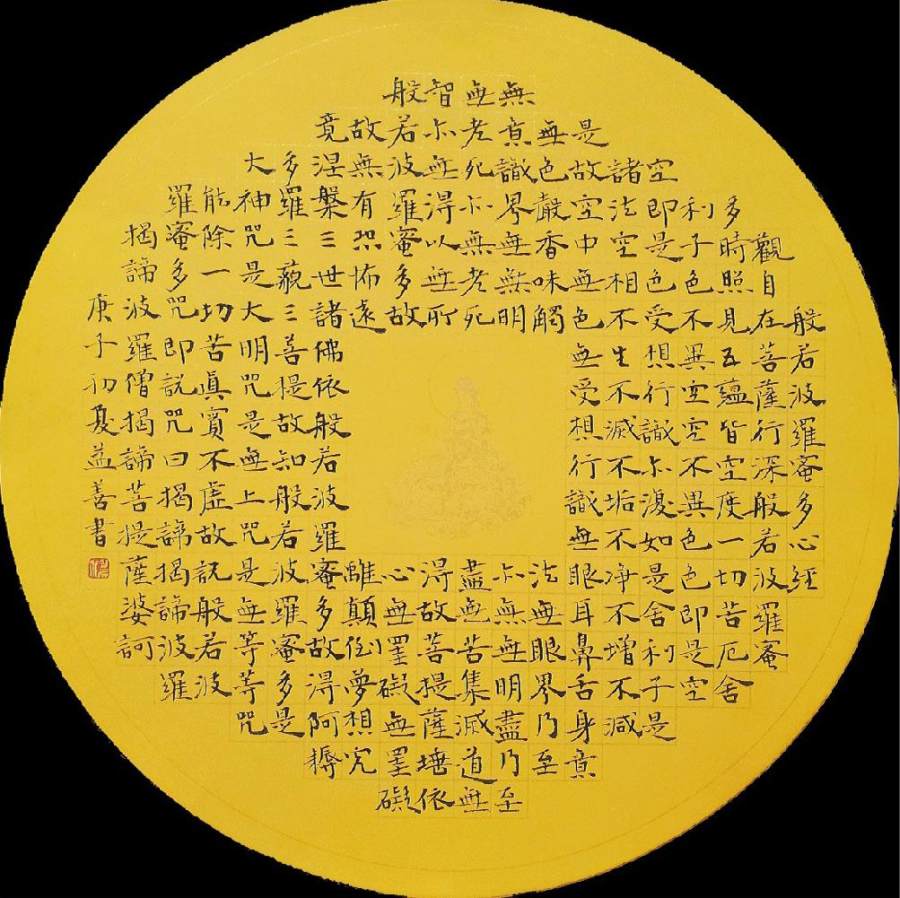 般若波羅蜜多心經
觀自在菩薩行深般若波羅蜜
多時照見五蘊皆空度一切苦厄舍
利子色不異空空不異色色即是空
空即是色受想行識亦復如是舍利子是
諸法空相不生不滅不垢不淨不增不減
是故空中無色無受想行識無眼耳鼻舌身意
無色聲香味觸法無眼界乃至
無意識界無無明亦無無明盡乃至
無老死亦無老死盡無苦集滅道無
智亦無得以無所得故菩提薩埵依
般若波羅蜜多故心無罣礙無罣礙
故無有恐怖遠離顛倒夢想究
竟涅槃三世諸佛依般若波羅蜜多故得阿耨
多羅三藐三菩提故知般若波羅蜜多是
大神咒是大明咒是無上咒是無等等咒
能除一切苦真實不虛故說般若波
羅蜜多咒即說咒曰揭諦揭諦波羅
揭諦波羅僧揭諦菩提薩婆訶
庚子初夏益善書